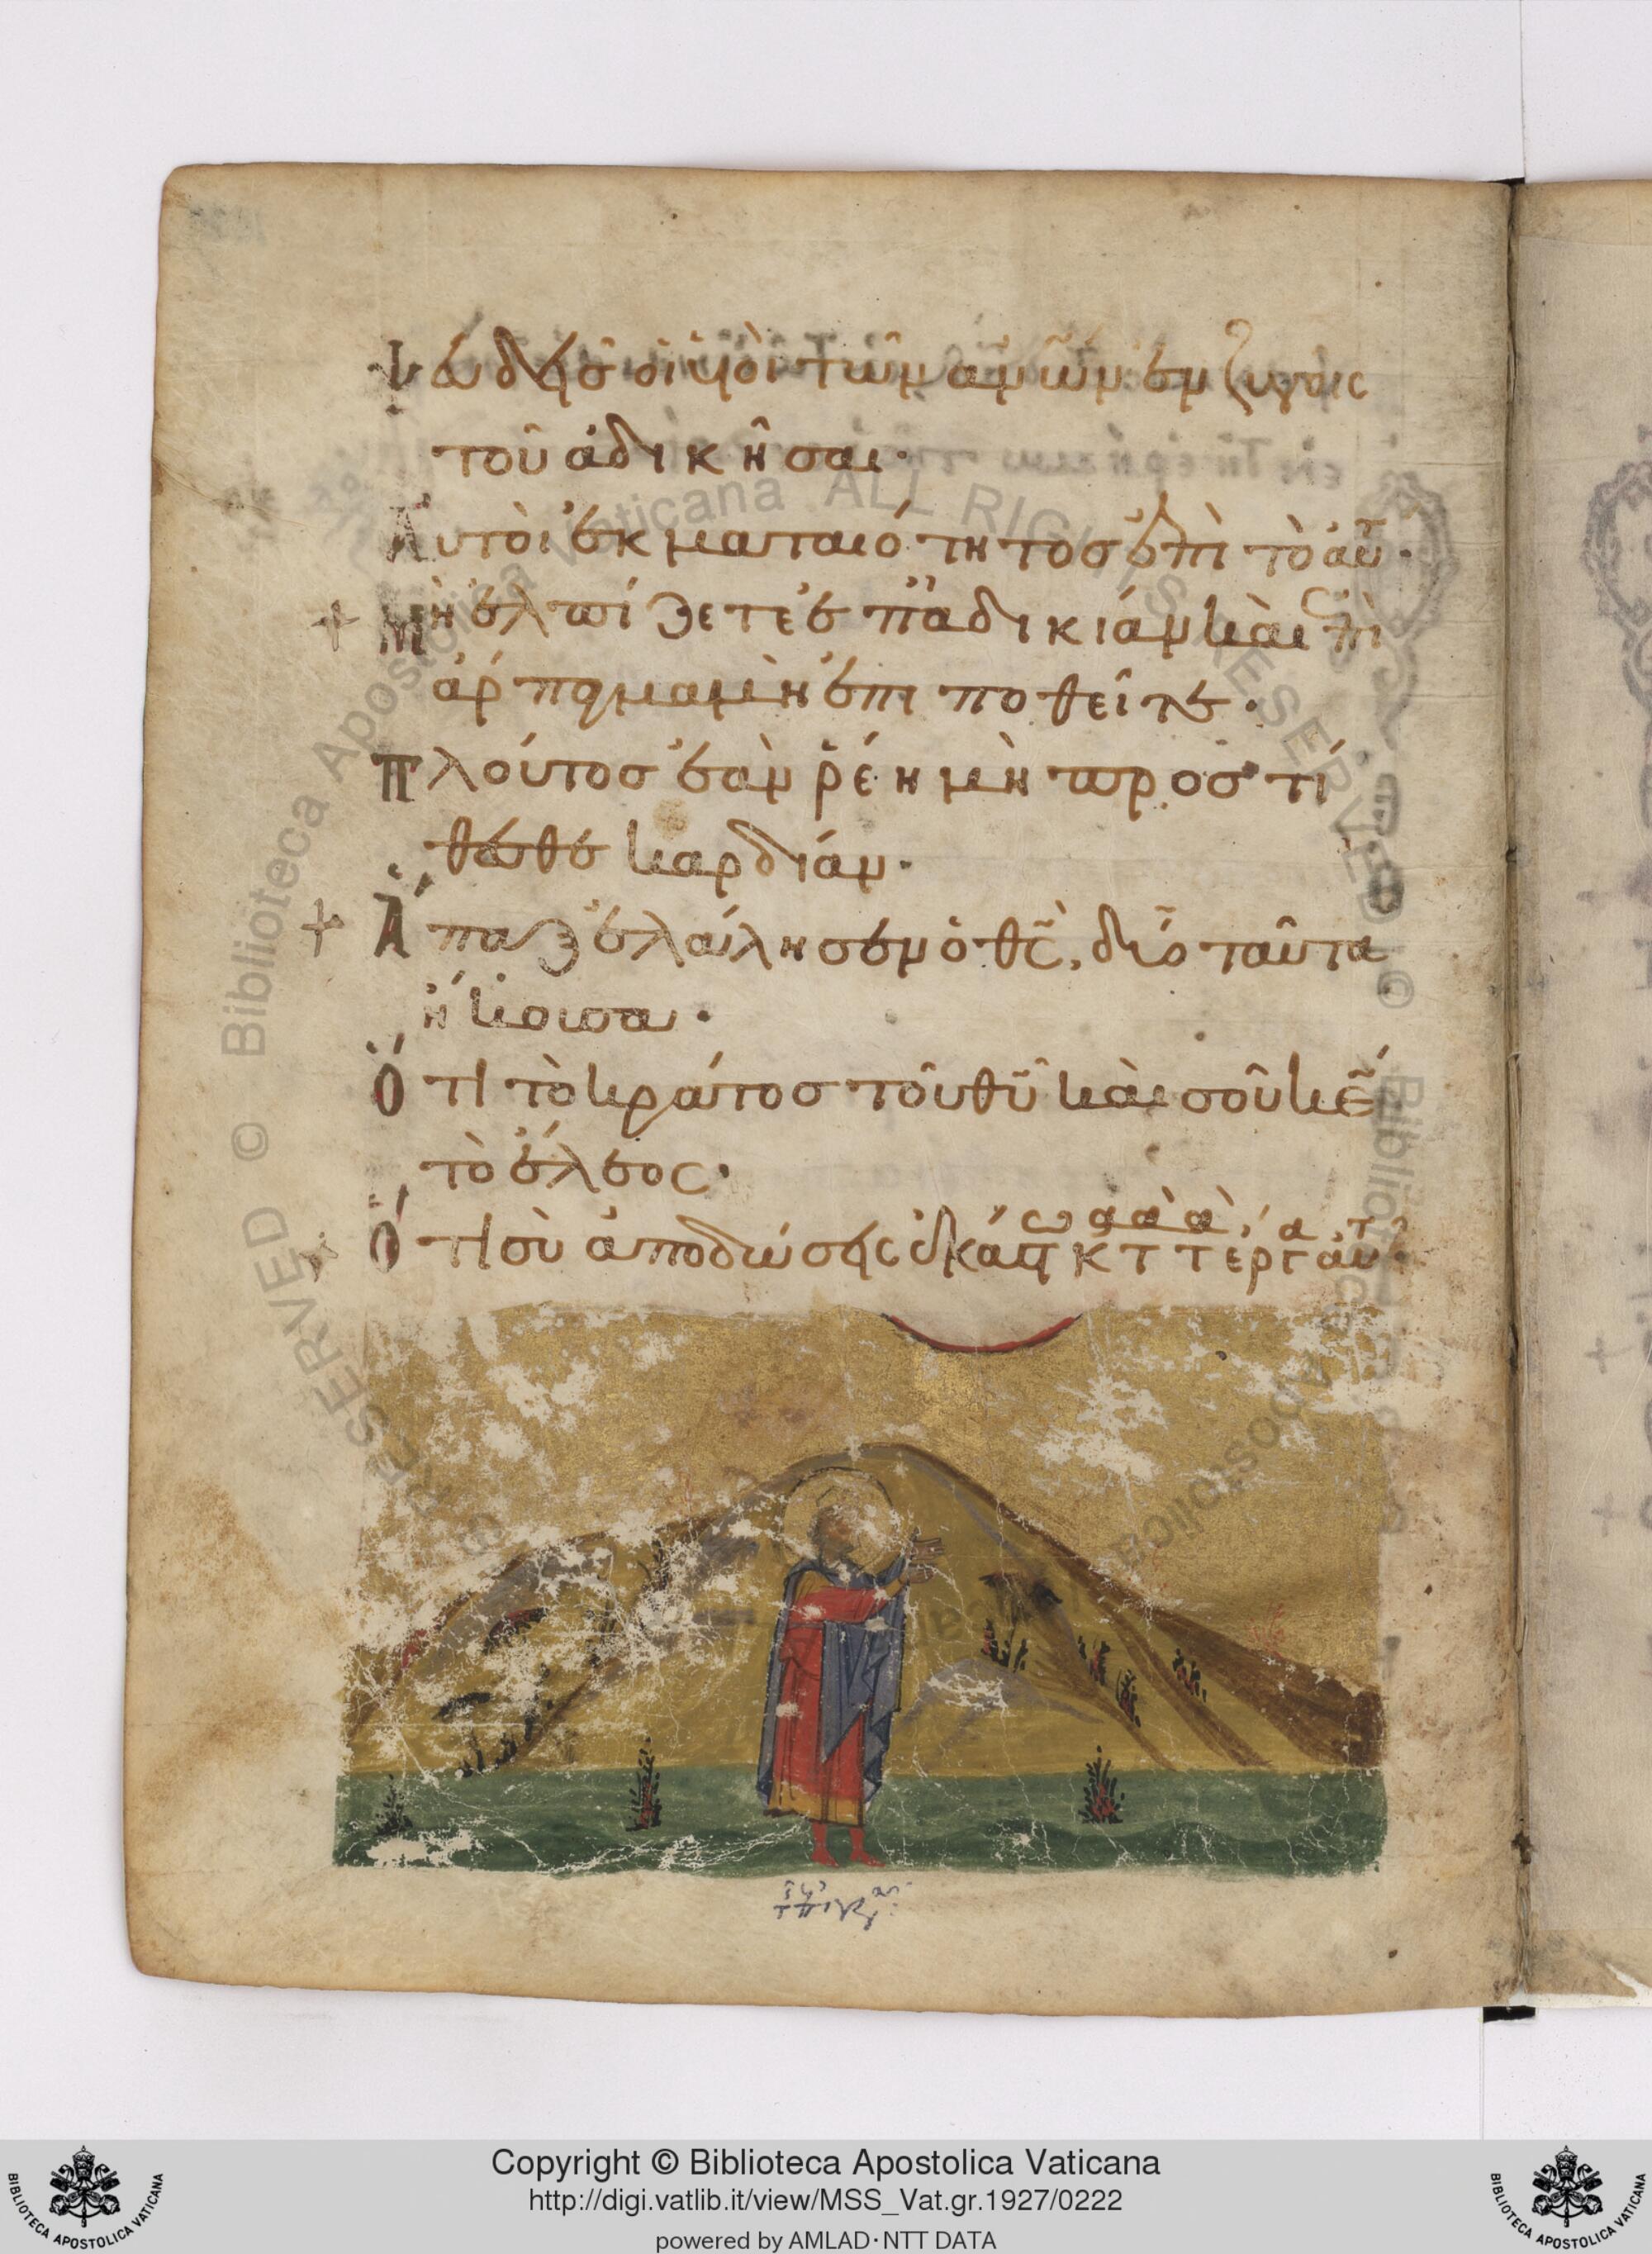 Ψευδεῖς οἱ υἱοὶ τῶν ἀνῶν ἐν ζυγοῖς
τοῦ ἀδικῆσαι·
Αὐτοὶ ἐκ ματαιότητος ἐπὶ τὸ αὐτ·
+ Μὴ ἐλπίζετε ἐπ ἀδικίαν καὶ ἐπὶ
ἁρπάγμα μὴ ἐπιποθεῖτε·
Πλοῦτος ἐὰν ῥέη μὴ προστί
θεσθε καρδίαν·
+ Ἅπαξ ἐλάλησεν ὁ θς, δύο ταῦτα
ἤκουσα·
Ὅτι τὸ κράτος τοῦ θυ καὶ σοῦ κε
τὸ ἔλεος·
Ὅτι σὺ ἀποδώσεις ἑκάστ κατὰ τὰ ἔργα αὐτ·
Copyright © Biblioteca Apostolica Vaticana
http://digi.vatlib.it/view/MSS_Vat.gr.1927/0222
powered by AMLAD·NTT DATA
BIBLIOTECA APOSTOLICA VATICANA
BIBLIOTECA APOSTOLICA VATICANA